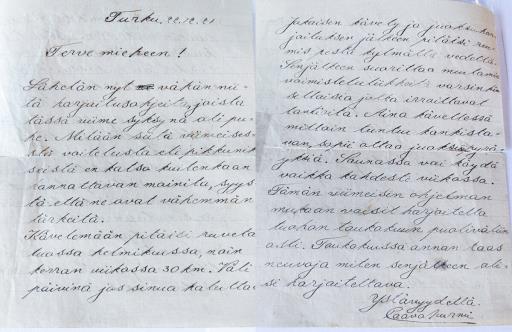 Turku, 22.12.21
Terve mieheen!
Lähetän nyt vähän niitä
tä harjoitusohjeita, joista
tässä viime syksynä oli pu-
he. Mitään sitä viimeises-
tä voitelusta eli pikkunik
seistä en katso kuitenkaan
kannattavan mainita, syys
tä että ne ovat vähemmän
tärkeitä.
Kävelemään pitäisi ruveta
tuossa helmikuussa, noin
kerran viikossa 30 km. Väli
päivinä jos sinua halutta
jokaisen kävely ja juoksuhar
joituksen jälkeen pitäisi ruu-
mis pestä kylmällä vedellä.
Senjälkeen suorittaa muutamia
voimisteluliikkeitä varsinkin
sellaisia jotka irroittavat
lanteita. Aina kävellessä
milloin tuntuu kankista-
van, sopii ottaa juoksupyrä
yksiä. Saunassa voi käydä
vaikka kahdesti viikossa.
Tämän viimeisen ohjelman
mukaan voisit harjoitella
tuohon toukokuun puoliväliin
asti. Toukokuussa annan taas
neuvoja miten senjälkeen oli-
si harjoiteltava.
Ystävyydellä.
Paavo Nurmi